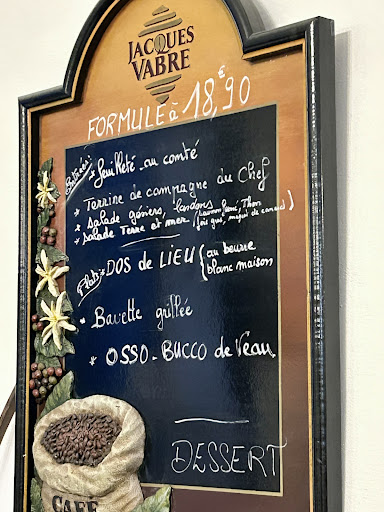 JACQUES
VABRE
FORMULE à 18,90€
Entrées:
* feuilleté au comté
* Terrine de campagne du Chef
* Salade Gésiers, lardons
* Salade Terre et mer (saumon fumé, Thon
fois gras, magret de canard)
Plats:
* DOS de LIEU (au beurre
blanc maison
* Bavette grillée
* OSSO-BUCCO de Veau
DESSERT
CAFÉ